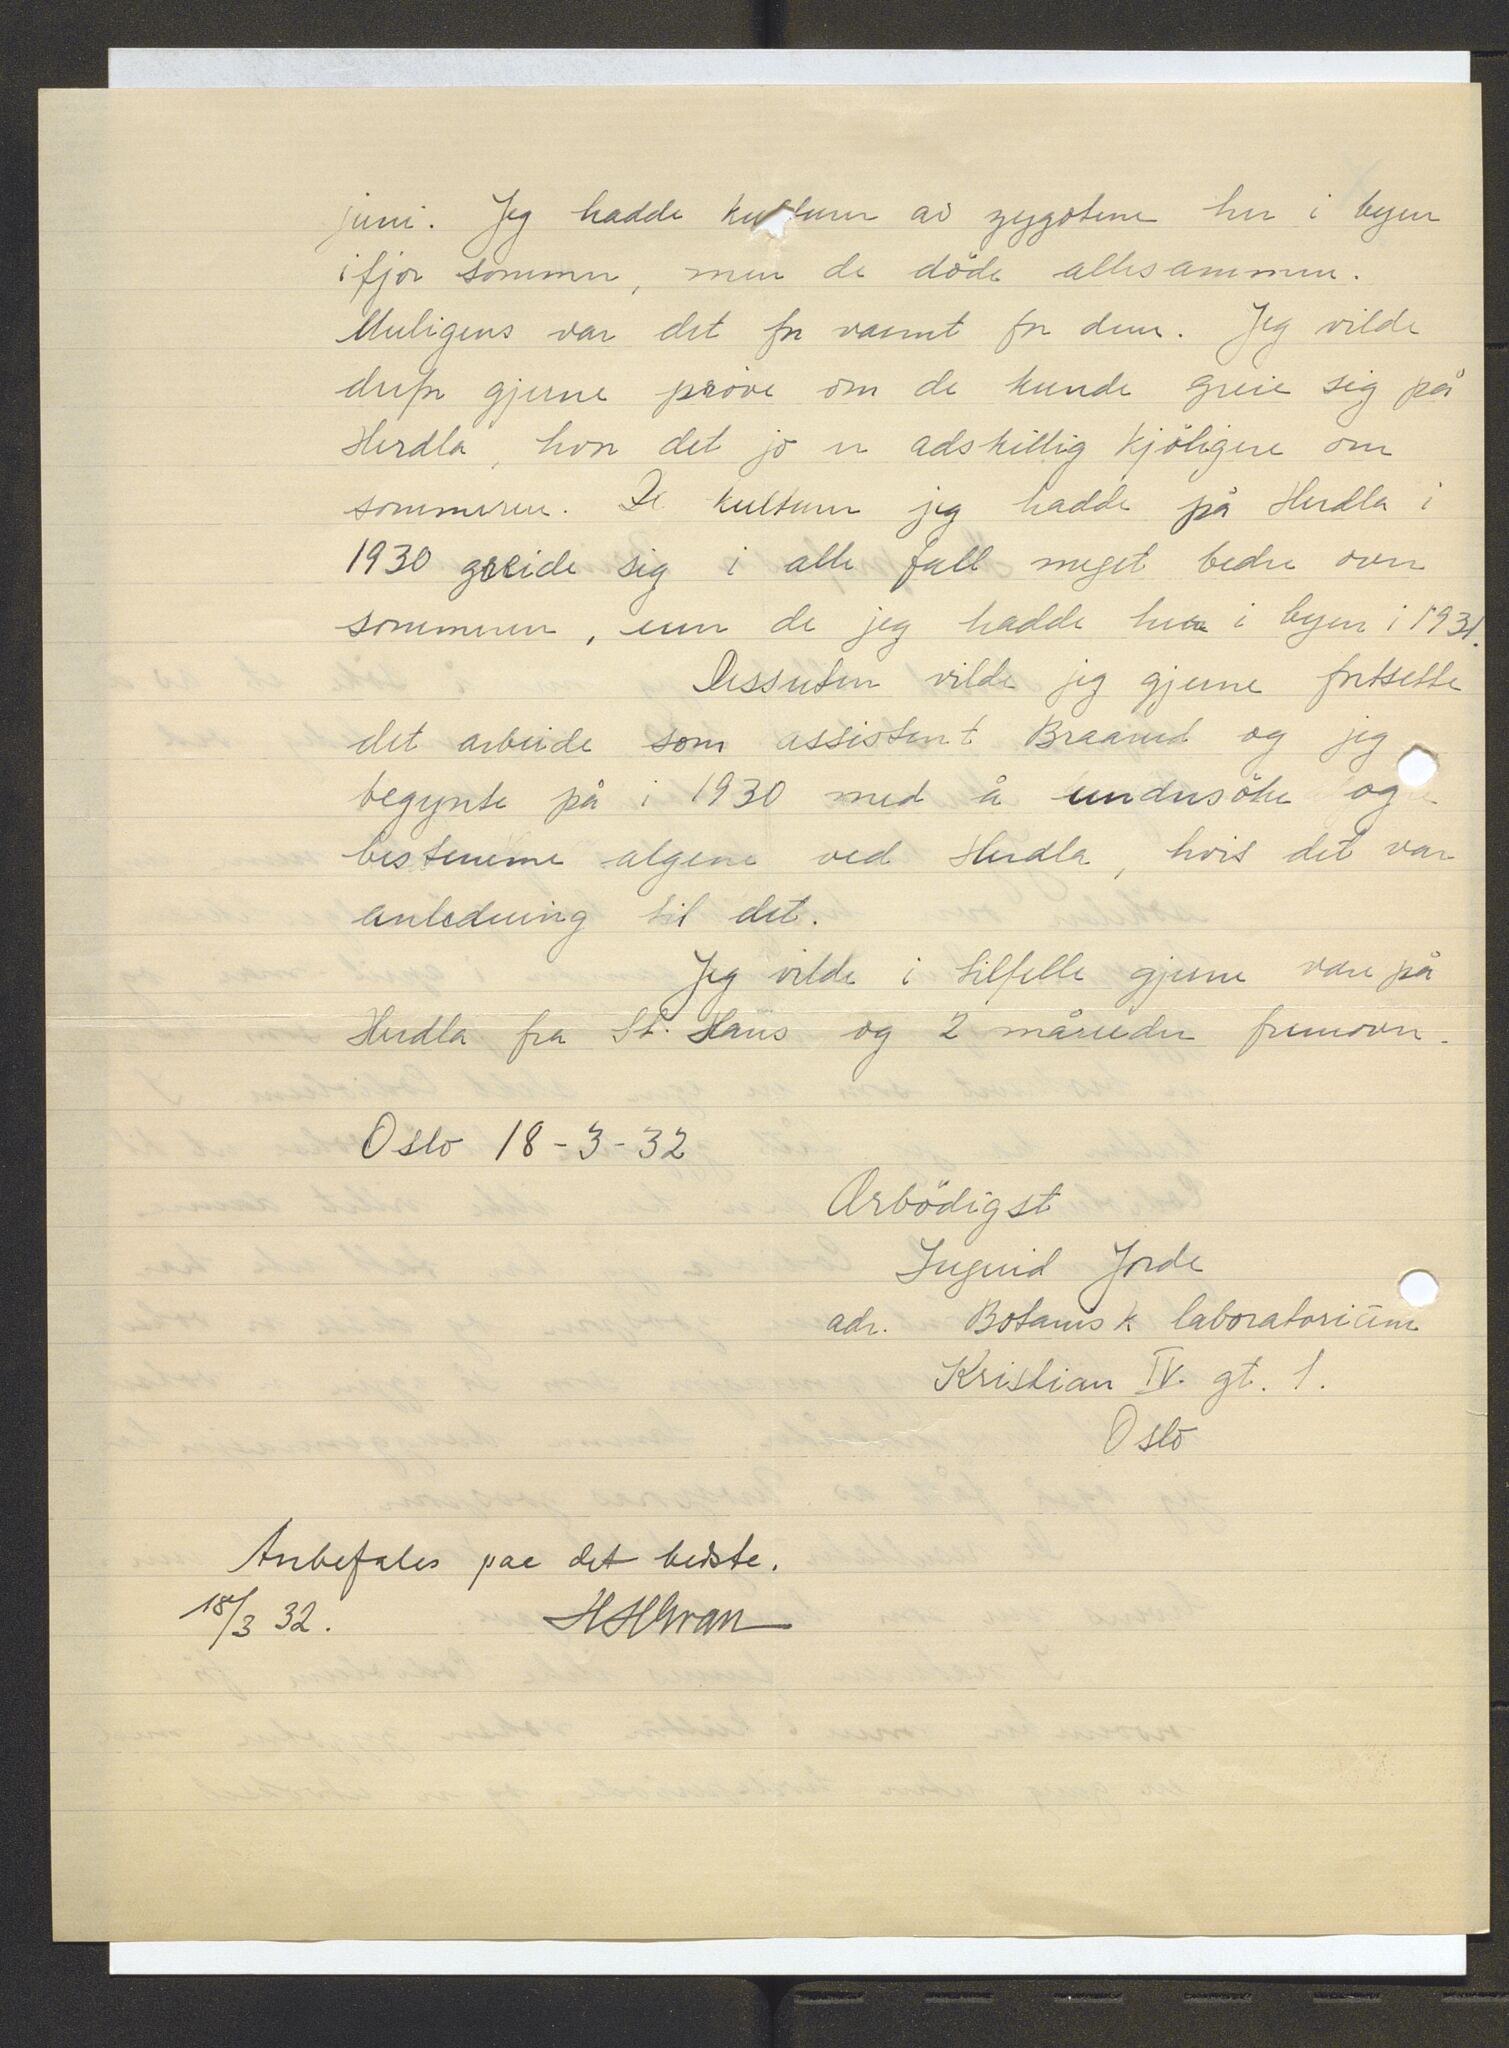 juni. Jeg hadde kulturer av zygotene her i byen
ifjor sommer, men de döde allesammen.
Muligens var det for varmt for dem. Jeg vilde
derfor gjerne pröve om de kunde greie sig på
Herdla, hvor det jo er adskillig kjöligere om
sommeren. De kulturer jeg hadde på Herdla i
1930 greide sig i alle fall meget bedre over
sommeren, enn de jeg hadde her i byen i 1931.
Dessuten vilde jeg gjerne fortsette
det arbeide som assistent Braarud og jeg
begynte på i 1930 med å undersöke og
bestemme algene ved Herdla, hvis det var
anledning til det.
Jeg vilde i tilfelle gjerne være på
Herdla fra St. Hans og 2 måneder fremover.
Oslo 18-3-32
Ærbödigst
Ingerid Jorde
adr. Botanisk laboratorium
Kristian IV. gt. 1.
Oslo
Anbefales paa det bedste.
18/3 32. HHGran